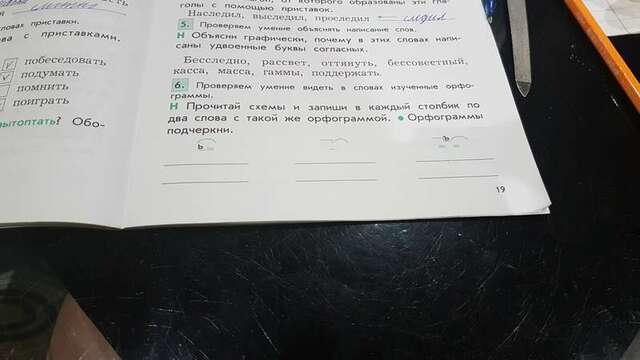 глаголы с помощью приставок.
Наследил, выследил, проследил ← следил
5. Проверяем умение объяснять написание слов.
Н Объясни графически, почему в этих словах напи-
саны удвоенные буквы согласных.
Бесследно, рассвет, оттянуть, бессовестный,
касса, масса, гаммы, поддержать.
6. Проверяем умение видеть в словах изученные орфо-
граммы.
Н Прочитай схемы и запиши в каждый столбик по
два слова с такой же орфограммой. • Орфограммы
подчеркни.
ь
ь
19
словах приставки.
ва с приставками,
побеседовать
подумать
помнить
поиграть
вытоптать? Обо-